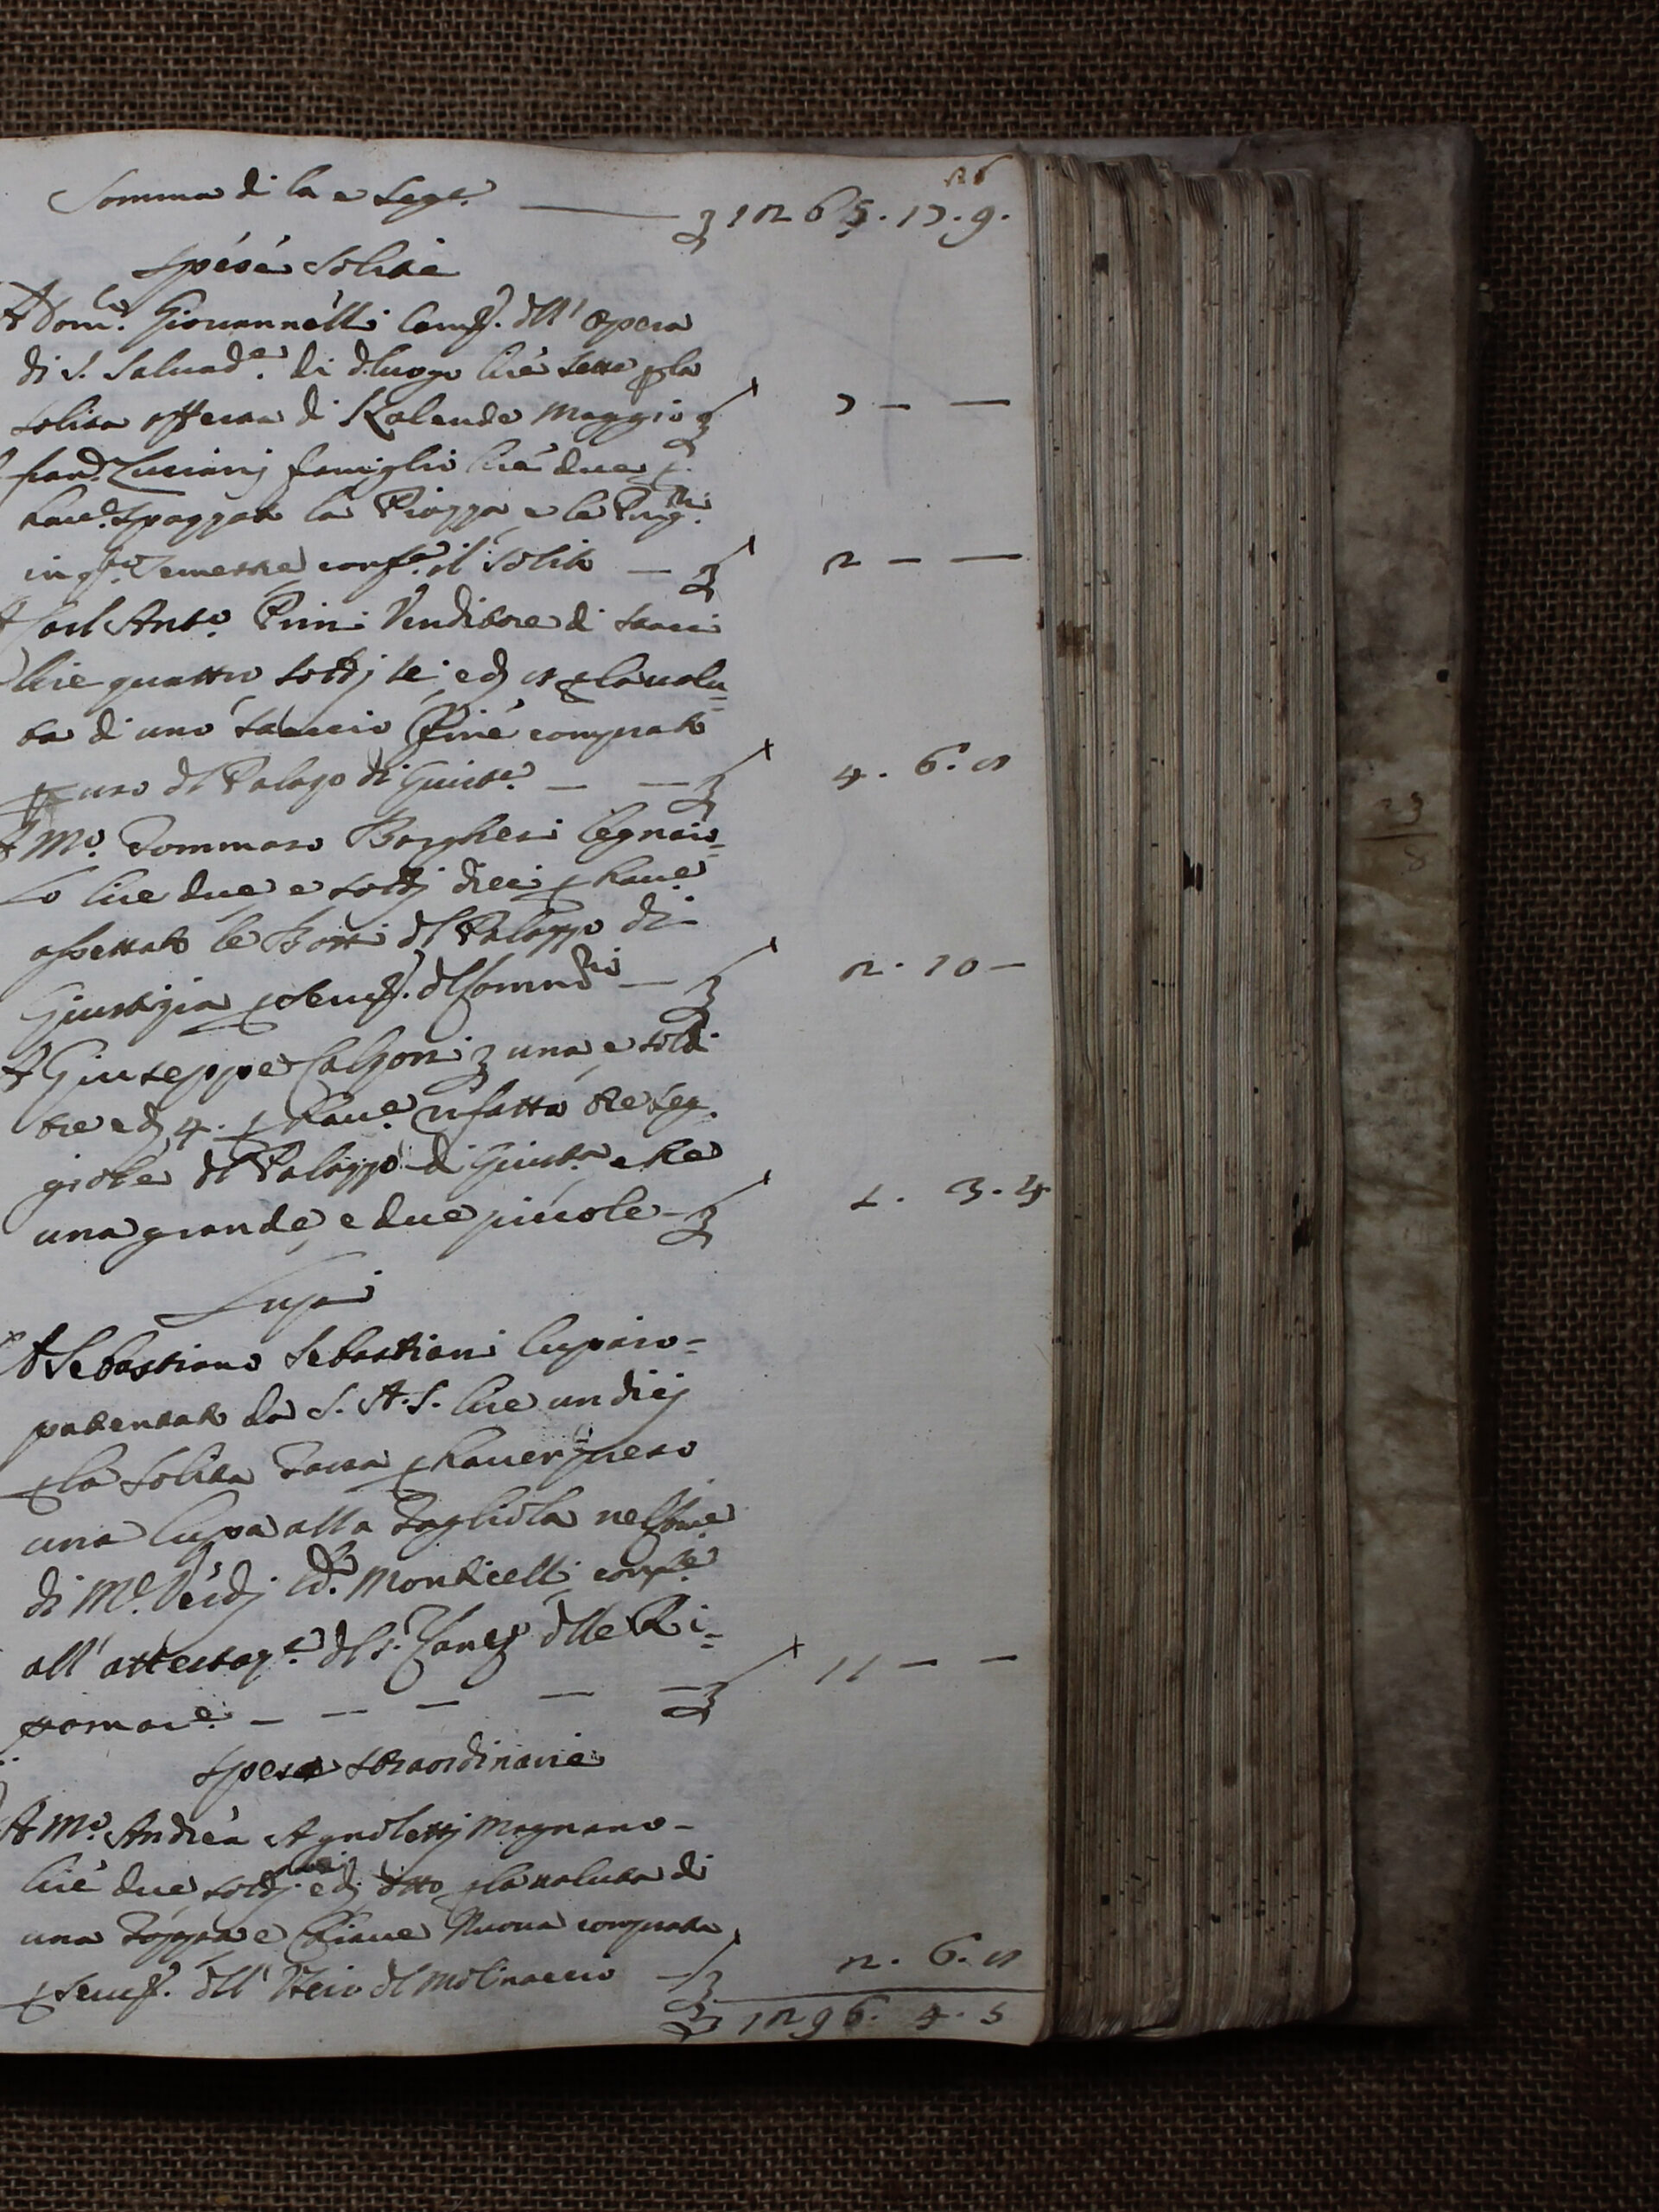 26
Somma di la e segue — £ 1265. 17. 9.
Spese Solite
A Dom.co Giovannelli Camer. dll' Opera
di S. Salvad.e di d. luogo lire sette p la
solita offerta di Kalende Maggio £ 7 — —
fran.o Luciani famiglio lire due p.
haver spazzato la Piazza e le Prig.ni
in q.to Semestre conf.e il solito — £ 2 — —
A Carl Ant.o Pini Venditore di stacci
lire quattro soldj sei e dj 8 p la valu=
ta di uno staccio fine comprato
p uso dl Palazo di Giust.a — — £ 4. 6. 8
A M.o Tommaso Borghesi legnaio=
lo lire due e soldj dieci p have.
assettato le Porti dl Palazzo di
Giustizia p serviz. dl Comun.
— £ 2. 10 —
A Giuseppe Calzoni £ una e soldi
tre e dj 4. p have. rifatto tre seg=
giole dl Palazzo di Giust.a che
una grande, e due piccole — £ 1. 3. 4
Lupi
A Sebastiano Sebastiani luparo=
patentato da S. A. S. lire undicj
p la solita Tassa p haver preso
una lupa alla Tagliola nel
di M.e Verdj d.o Monticelli, conf.e
all' attestaz.e dl S.r Canc.e dlle Ri=
pomar.e — — — — £ 11 — —
Spese straordinarie
A M.o Andrea Agnolettj Magnano
lire due, soldj sei e dj otto p la valuta di
una Toppa e Chiave Nuova comprata
p serviz. dll' Uscio dl Molinaccio — £ 2. 6. 8
£ 1296. 4. 5